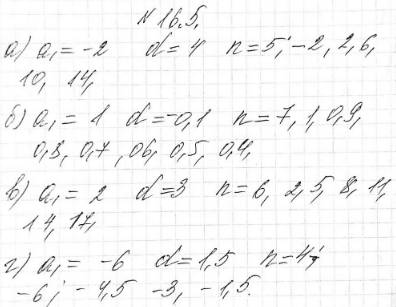 № 16.5.
а) a₁ = -2 d = 4 n = 5; -2, 2, 6,
10, 14,
б) a₁ = 1 d = -0,1 n = 7, 1, 0,9,
0,8, 0,7, 06, 0,5, 0,4,
в) a₁ = 2 d = 3 n = 6, 2, 5, 8, 11,
14, 17,
г) a₁ = -6 d = 1,5 n = 4;
-6; -4,5 -3, -1,5.